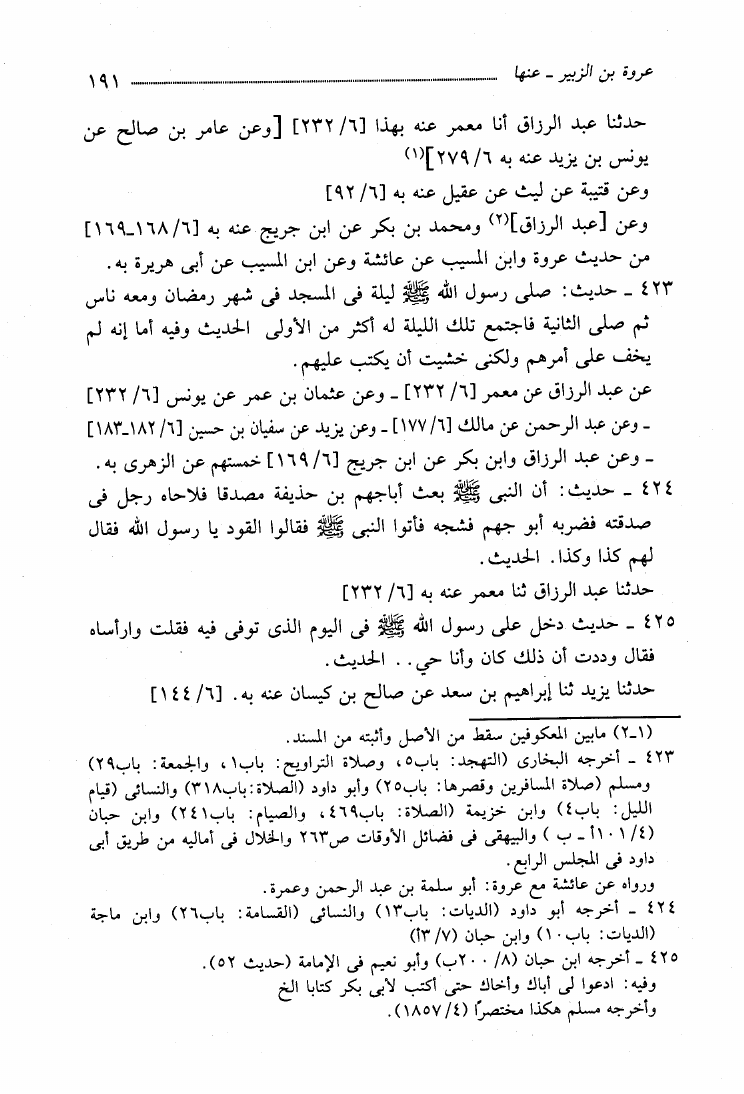 عروة بن الزبير ـ عنها ١٩١
حدثنا عبد الرزاق أنا معمر عنه بهذا [٦/ ٢٣٢] [وعن عامر بن صالح عن
يونس بن يزيد عنه به ٦/ ٢٧٩](١)
وعن قتيبة عن ليث عن عقيل عنه به [٦/ ٩٢]
وعن [عبد الرزاق](٢) ومحمد بن بكر عن ابن جريج عنه به [٦/ ١٦٨ـ١٦٩]
من حديث عروة وابن المسيب عن عائشة وعن ابن المسيب عن أبى هريرة به.
٤٢٣ ـ حديث: صلى رسول الله ﷺ ليلة فى المسجد فى شهر رمضان ومعه ناس
ثم صلى الثانية فاجتمع تلك الليلة له أكثر من الأولى الحديث وفيه أما إنه لم
يخف على أمرهم ولكنى خشيت أن يكتب عليهم.
عن عبد الرزاق عن معمر [٦/ ٢٣٢] ـ وعن عثمان بن عمر عن يونس [٦/ ٢٣٢]
ـ وعن عبد الرحمن عن مالك [٦/ ١٧٧] ـ وعن يزيد عن سفيان بن حسين [٦/ ١٨٢ـ١٨٣]
ـ وعن عبد الرزاق وابن بكر عن ابن جريج [٦/ ١٦٩] خمستهم عن الزهرى به.
٤٢٤ ـ حديث: أن النبى ﷺ بعث أباجهم بن حذيفة مصدقا فلاحاه رجل فى
صدقته فضربه أبو جهم فشجه فأتوا النبى ﷺ فقالوا القود يا رسول الله فقال
لهم كذا وكذا. الحديث.
حدثنا عبد الرزاق ثنا معمر عنه به [٦/ ٢٣٢]
٤٢٥ ـ حديث دخل على رسول الله ﷺ فى اليوم الذى توفى فيه فقلت وارأساه
فقال وددت أن ذلك كان وأنا حي.. الحديث.
حدثنا يزيد ثنا إبراهيم بن سعد عن صالح بن كيسان عنه به. [٦/ ١٤٤]
(١ـ٢) مابين المعكوفين سقط من الأصل وأثبته من المسند.
٤٢٣ ـ أخرجه البخارى (التهجد: باب٥، وصلاة التراويح: باب١، والجمعة: باب٢٩)
ومسلم (صلاة المسافرين وقصرها: باب٢٥) وأبو داود (الصلاة:باب٣١٨) والنسائى (قيام
الليل: باب٤) وابن خزيمة (الصلاة: باب٤٦٩، والصيام: باب٢٤١) وابن حبان
(٤/ ١٠١أ ـ ب ) والبيهقى فى فضائل الأوقات ص٢٦٣ والخلال فى أماليه من طريق أبى
داود فى المجلس الرابع.
ورواه عن عائشة مع عروة: أبو سلمة بن عبد الرحمن وعمرة.
٤٢٤ ـ أخرجه أبو داود (الديات: باب١٣) والنسائى (القسامة: باب٢٦) وابن ماجة
(الديات: باب١٠) وابن حبان (٧/ ٣أ)
٤٢٥ ـ أخرجه ابن حبان (٨/ ٢٠٠ب) وأبو نعيم فى الإمامة (حديث ٥٢).
وفيه: ادعوا لى أباك وأخاك حتى أكتب لأبى بكر كتابا الخ
وأخرجه مسلم هكذا مختصرًا (٤/ ١٨٥٧).